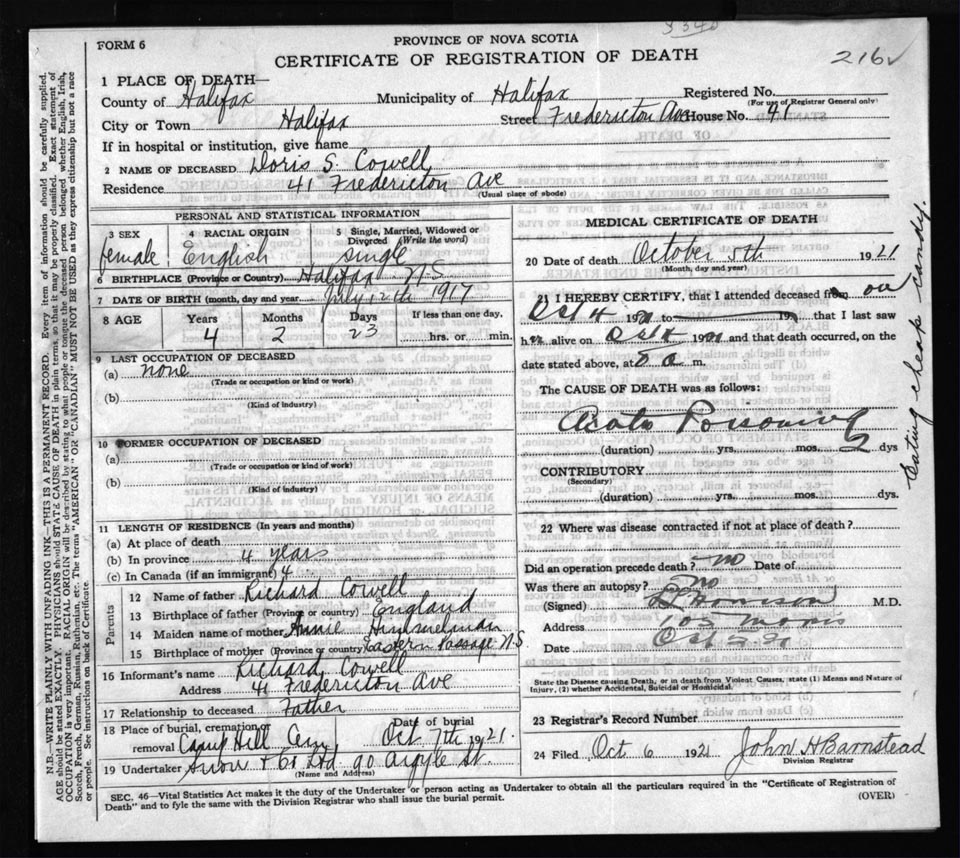 3340
216
FORM 6
PROVINCE OF NOVA SCOTIA
CERTIFICATE OF REGISTRATION OF DEATH
1 PLACE OF DEATH—
County of Halifax Municipality of Halifax Registered No.
(For use of Registrar General only)
City or Town Halifax Street Fredericton Ave House No. 41
If in hospital or institution, give name
2 NAME OF DECEASED Doris S. Cowell
Residence 41 Fredericton Ave
(Usual place of abode)
PERSONAL AND STATISTICAL INFORMATION
3 SEX 4 RACIAL ORIGIN 5 Single, Married, Widowed or Divorced (Write the word)
female English single
6 BIRTHPLACE (Province or Country) Halifax N.S
7 DATE OF BIRTH (month, day and year July 12th 1917
8 AGE Years Months Days If less than one day.
4 2 23 hrs. or min.
9 LAST OCCUPATION OF DECEASED
(a) none
(Trade or occupation or kind or work)
(b)
(Kind of industry)
10 FORMER OCCUPATION OF DECEASED
(a)
(Trade or occupation or kind of work)
(b)
(Kind of industry)
11 LENGTH OF RESIDENCE (In years and months)
(a) At place of death
(b) In province 4 years
(c) In Canada (if an immigrant) 4
Parents
12 Name of father Richard Cowell
13 Birthplace of father (Province or country) England
14 Maiden name of mother Annie Himmelman
15 Birthplace of mother (Province or country) Eastern Passage N.S.
16 Informant's name Richard Cowell
Address 41 Fredericton Ave
17 Relationship to deceased Father
18 Place of burial, cremation or removal Camp Hill Cem Date of burial Oct 7th 1921.
19 Undertaker Snow & Co Ltd 90 Argyle St.
(Name and Address)
MEDICAL CERTIFICATE OF DEATH
20 Date of death October 5th 1921
(Month, day and year)
21 I HEREBY CERTIFY, that I attended deceased from on
Oct 4 1921 to 19 , that I last saw
her alive on Oct 4 1921 and that death occurred, on the
date stated above, at 8 a m.
The CAUSE OF DEATH was as follows:
Poisoning
(duration) yrs. mos. 2 dys
Eating cheap candy.
CONTRIBUTORY
(Secondary)
(duration) yrs. mos. dys.
22 Where was disease contracted if not at place of death?
Did an operation precede death? no Date of
Was there an autopsy? No
(Signed) M.D.
Address 103 Morris
Date Oct 5 21
State the Disease causing Death, or in death from Violent Causes, state (1) Means and Nature of
Injury, (2) whether Accidental, Suicidal or Homicidal.
23 Registrar's Record Number
24 Filed Oct 6 1921 John H Barnstead
Division Registrar
SEC. 46—Vital Statistics Act makes it the duty of the Undertaker or person acting as Undertaker to obtain all the particulars required in the "Certificate of Registration of
Death" and to fyle the same with the Division Registrar who shall issue the burial permit. (OVER)
N.B.—WRITE PLAINLY WITH UNFADING INK—THIS IS A PERMANENT RECORD. Every item of information should be carefully supplied.
AGE should be stated EXACTLY. PHYSICIANS should STATE CAUSE OF DEATH in plain terms, so that it may be properly classified. Exact statement of
OCCUPATION is very important. RACIAL ORIGIN will be described by stating to what people or tongue the deceased person belonged whether English, Irish,
Scotch, French, German, Russian, Ruthenian, etc. The terms "AMERICAN" OR "CANADIAN" MUST NOT BE USED as they express citizenship but not a race
or people. See instructions on back of Certificate.